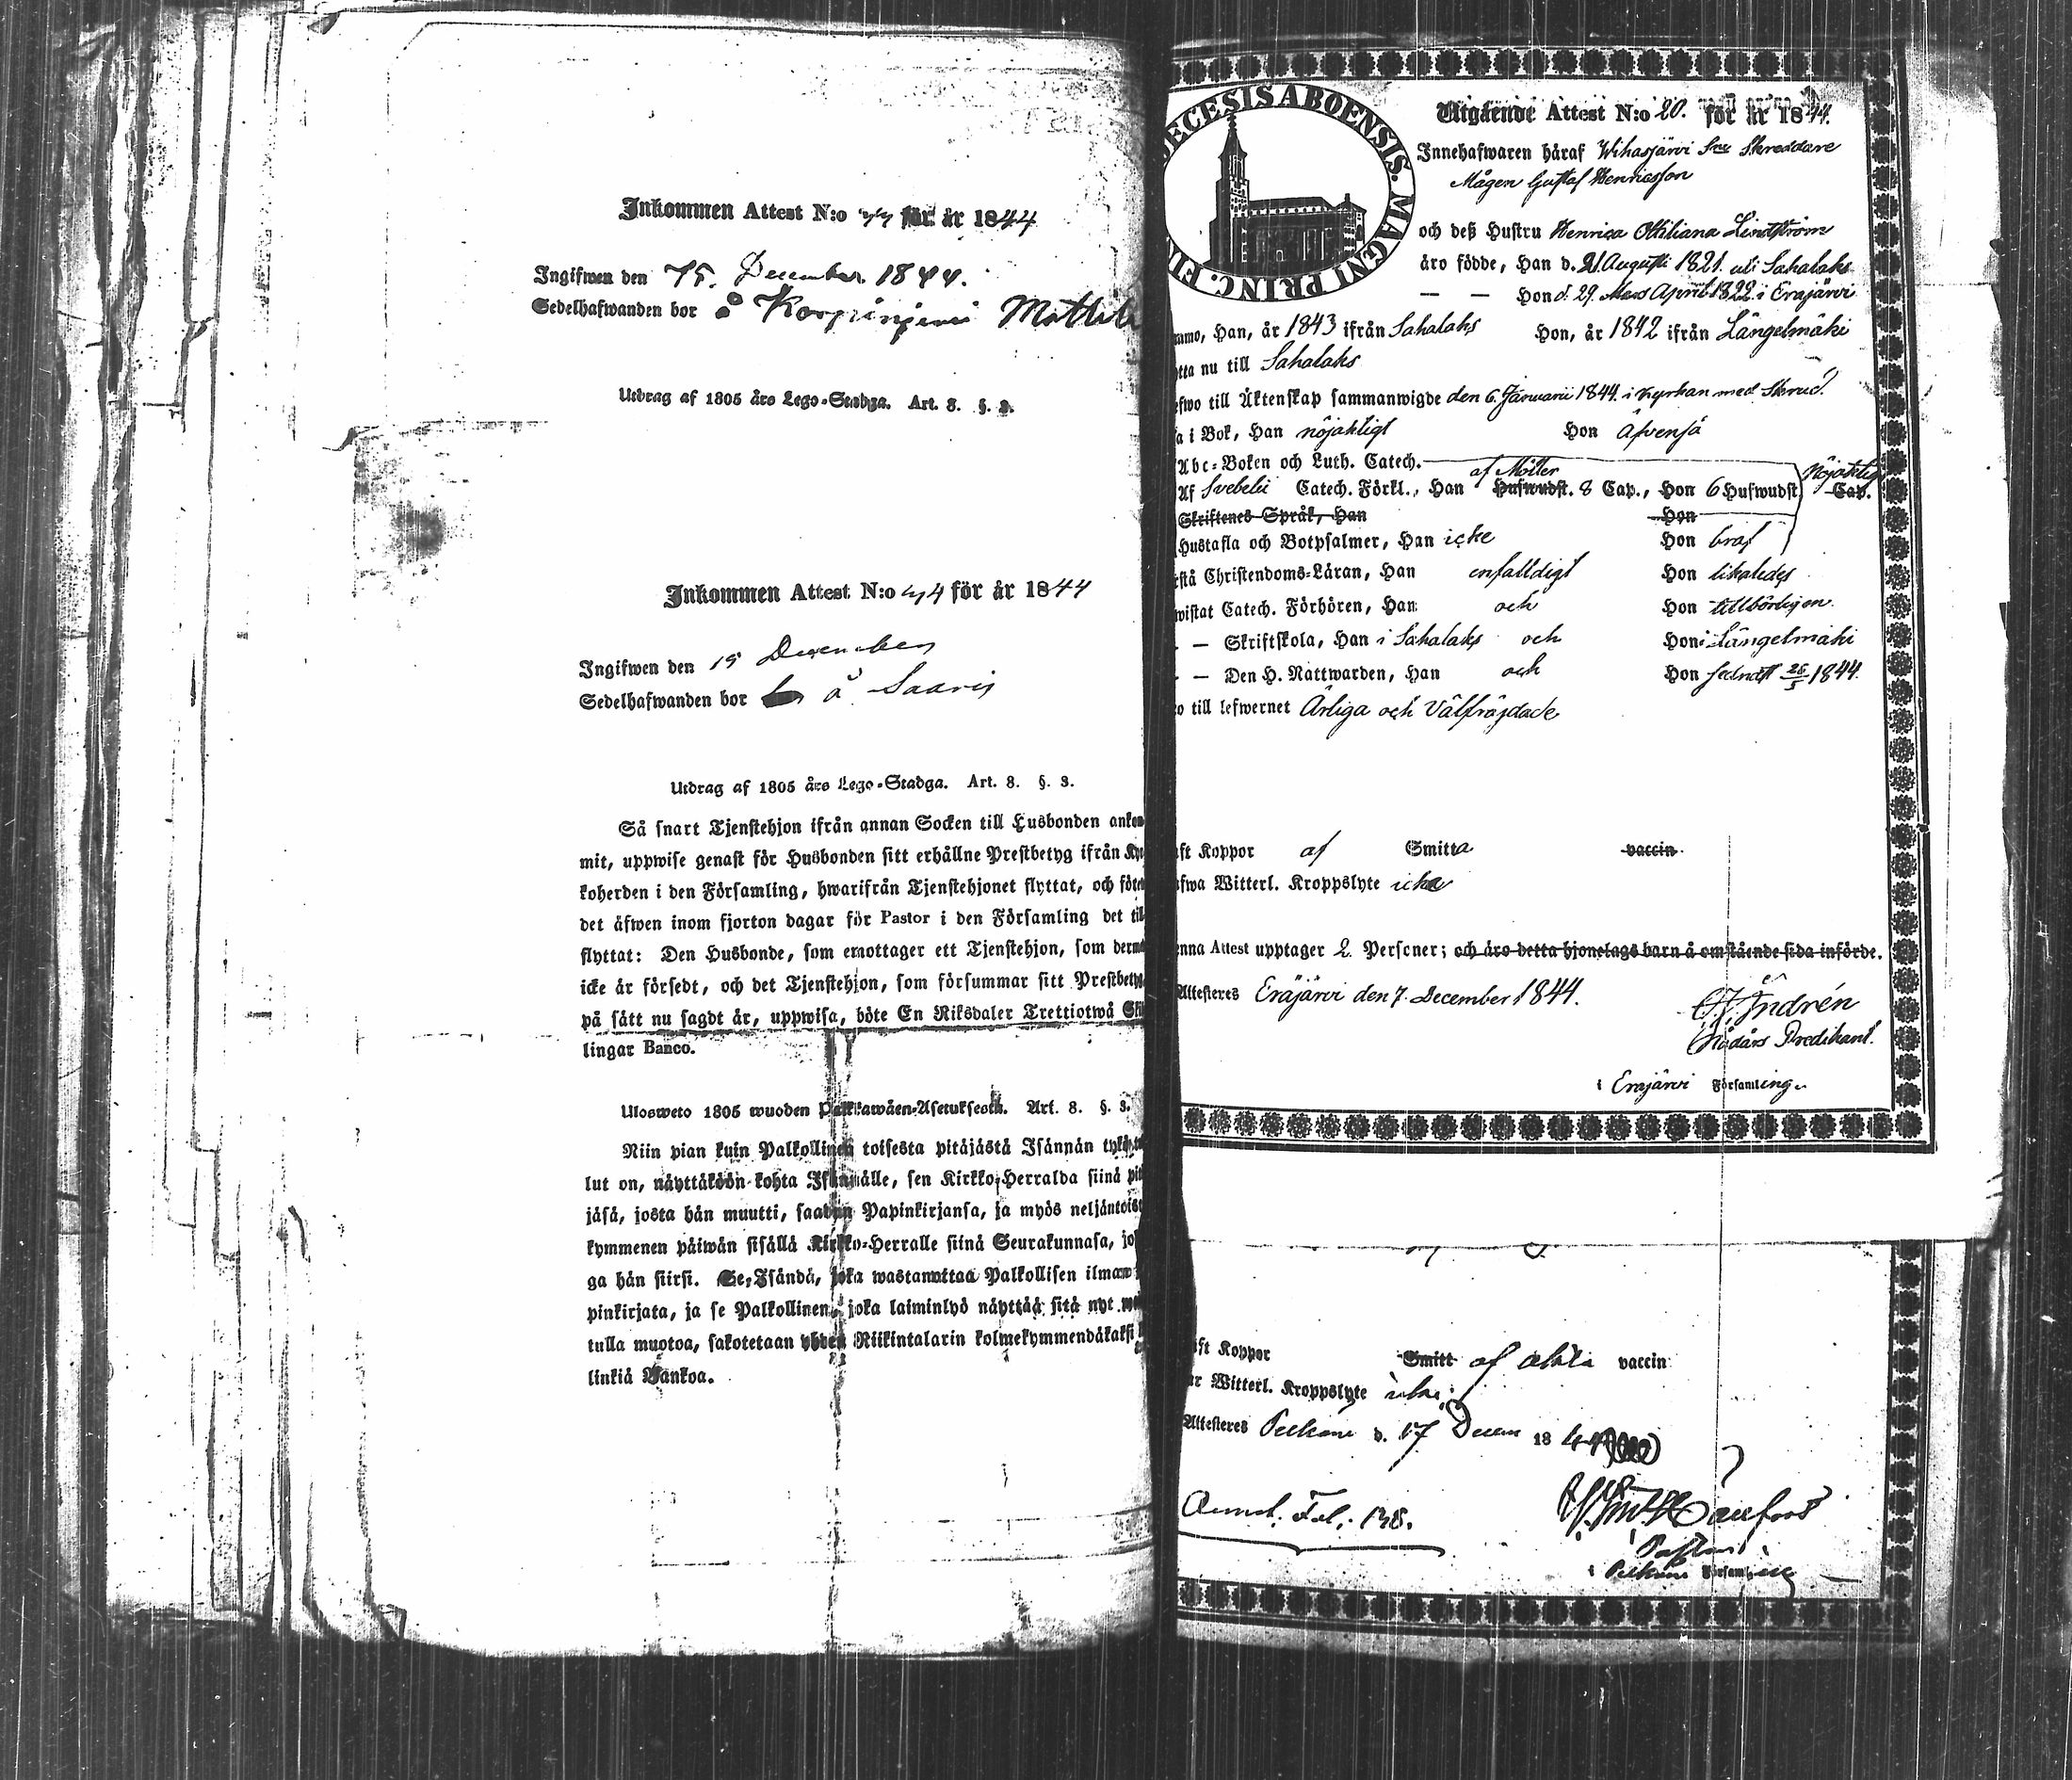 Inkommen Attest N:o för år 1844
Ingifwen den 15. December 1844.
Sedelhafwanden bor å
Utdrag af 1805 års Lego-Stadga. Art. 8. §. 3.
Inkommen Attest N:o för år 1844
Ingifwen den 15 December
Sedelhafwanden bor å Saaris
Utdrag af 1805 års Lego-Stadga. Art. 8. §. 3.
Så snart Tjenstehjon ifrån annan Socken till Husbonden ankom
mit, uppwise genast för Husbonden sitt erhållne Prestbetyg ifrån Ky
koherden i den Församling, hwarifrån Tjenstehjonet flyttat, och föte
det äfwen inom fjorton dagar för Pastor i den Församling det til
flyttat: Den Husbonde, som emottager ett Tjenstehjon, som derm
icke är försedt, och det Tjenstehjon, som försummar sitt Prestbetyg
på sätt nu sagdt är, uppwisa, böte En Riksdaler Trettiotwå Ski
lingar Banco.
Ulosweto 1805 wuoden Palkkawäen-Asetuksesta. Art. 8. §. 3.
Niin pian kuin Palkollinen toisesta pitäjästä Isännän tykö
lut on, näyttäköön kohta Isännälle, sen Kirkko-Herralda siinä pit
jäsä, josta hän muutti, saadun Papinkirjansa, ja myös neljäntoist
kymmenen päiwän sisällä Kirkko-Herralle siinä Seurakunnasa, jo
ga hän siirsi. Se Isändä, joka wastanottaa Palkollisen ilman
pinkirjata, ja se Palkollinen, joka laiminlyö näyttää sitä nyt
tulla muotoa, sakotetaan yhden Riikintalarin kolmekymmendäkaksi
linkiä Bankoa.
DIECESIS ABOENSIS. MAGNI PRINC. FI
Utgående Attest N:o 20. för år 1844.
Innehafwaren häraf Wihasjärvi Skreddare
Mågen Gustaf Henricsson
och deß Hustru Henrica Ottiliana Lindström
äro födde, Han d. 21 Augusti 1821. uti Sahalaks
— — Hon d. 29. April 1822. i Eräjärvi
mmo, Han, år 1843 ifrån Sahalaks Hon, år 1842 ifrån Längelmäki
tta nu till Sahalaks
efwo till Äktenskap sammanwigde den 6. Januarii 1844. i Kyrkan med Skrud.
a i Bok, Han nöjaktigt Hon äfvenså
Abc-Boken och Luth. Catech.
af Möller Nöjaktigt
Af Svebelii Catech. Förkl., Han Hufwudst. 8 Cap., Hon 6 Hufwudst. Cap.
Skriftenes Språk, Han Hon
Hustafla och Botpsalmer, Han icke Hon braf
stå Christendoms-Läran, Han enfalldigt Hon likaledes
wistat Catech. Förhören, Han och Hon tillbörligen.
— Skriftskola, Han i Sahalaks och Hon i Längelmäki
— Den H. Nattwarden, Han och Hon sednast 26/5 1844.
o till lefwernet Ärliga och Välfräjdade
ft Koppor af Smitta vaccin.
fwa Witterl. Kroppslyte icke
enna Attest upptager 2. Personer; och äro detta hjonelags barn å omstående sida införde.
Attesteres Eräjärvi den 7. December 1844.
Indrén
Nådårs Predikant.
i Eräjärvi Församling.
ft Koppor Smitt af vaccin
r Witterl. Kroppslyte icke
Attesteres Pelkäne d. 17 Decem 1844
Fol. 138.
Pastor
i Pelkäne Församling